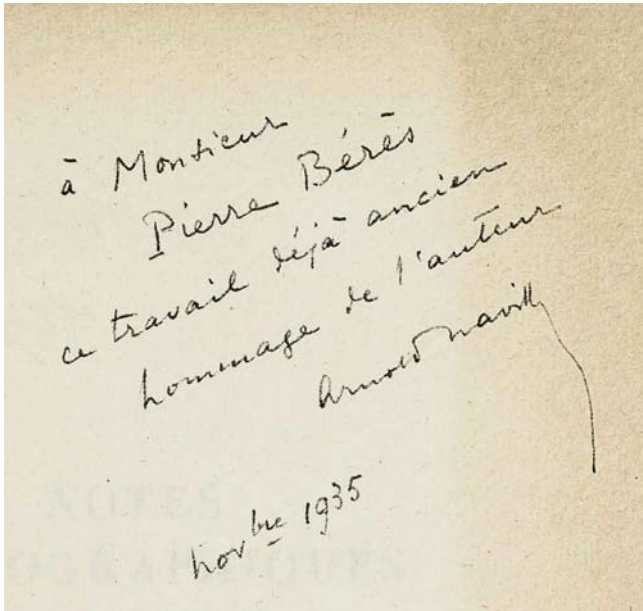 à Monsieur
Pierre Bérès
ce travail déjà ancien
hommage de l'auteur
Arnold Naville
NOTES
novbre 1935
OGRAPHIQUES